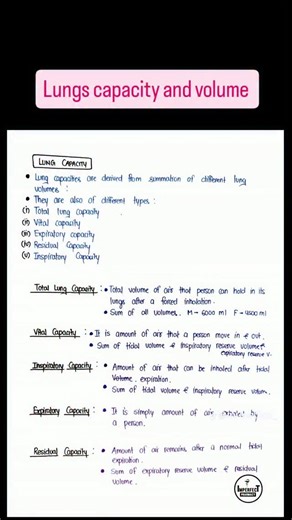 Lungs capacity and volume
LUNG CAPACITY
• Lung capacities are derived from summation of different lung
volumes :
• They are also of different types :
(i) Total lung capacity
(ii) Vital capacity
(iii) Expiratory capacity
(iv) Residual Capacity
(v) Inspiratory Capacity
Total Lung Capacity : • Total volume of air that person can hold in its
lungs after a forced inhalation.
• Sum of all volumes. M → 6000 ml F → 4200 ml
Vital Capacity : • It is amount of air that a person move in & out.
• Sum of tidal volume & inspiratory reserve volume &
expiratory reserve v.
Inspiratory Capacity : • Amount of air that can be inhaled after tidal
volume. expiration.
• Sum of tidal volume & inspiratory reserve volum.
Expiratory Capacity : • It is simply amount of air exhaled by
a person.
Residual Capacity : • Amount of air remains after a normal tidal
expiration.
• Sum of expiratory reserve volume & residual
volume.
IMPERFECT
PHARMACY